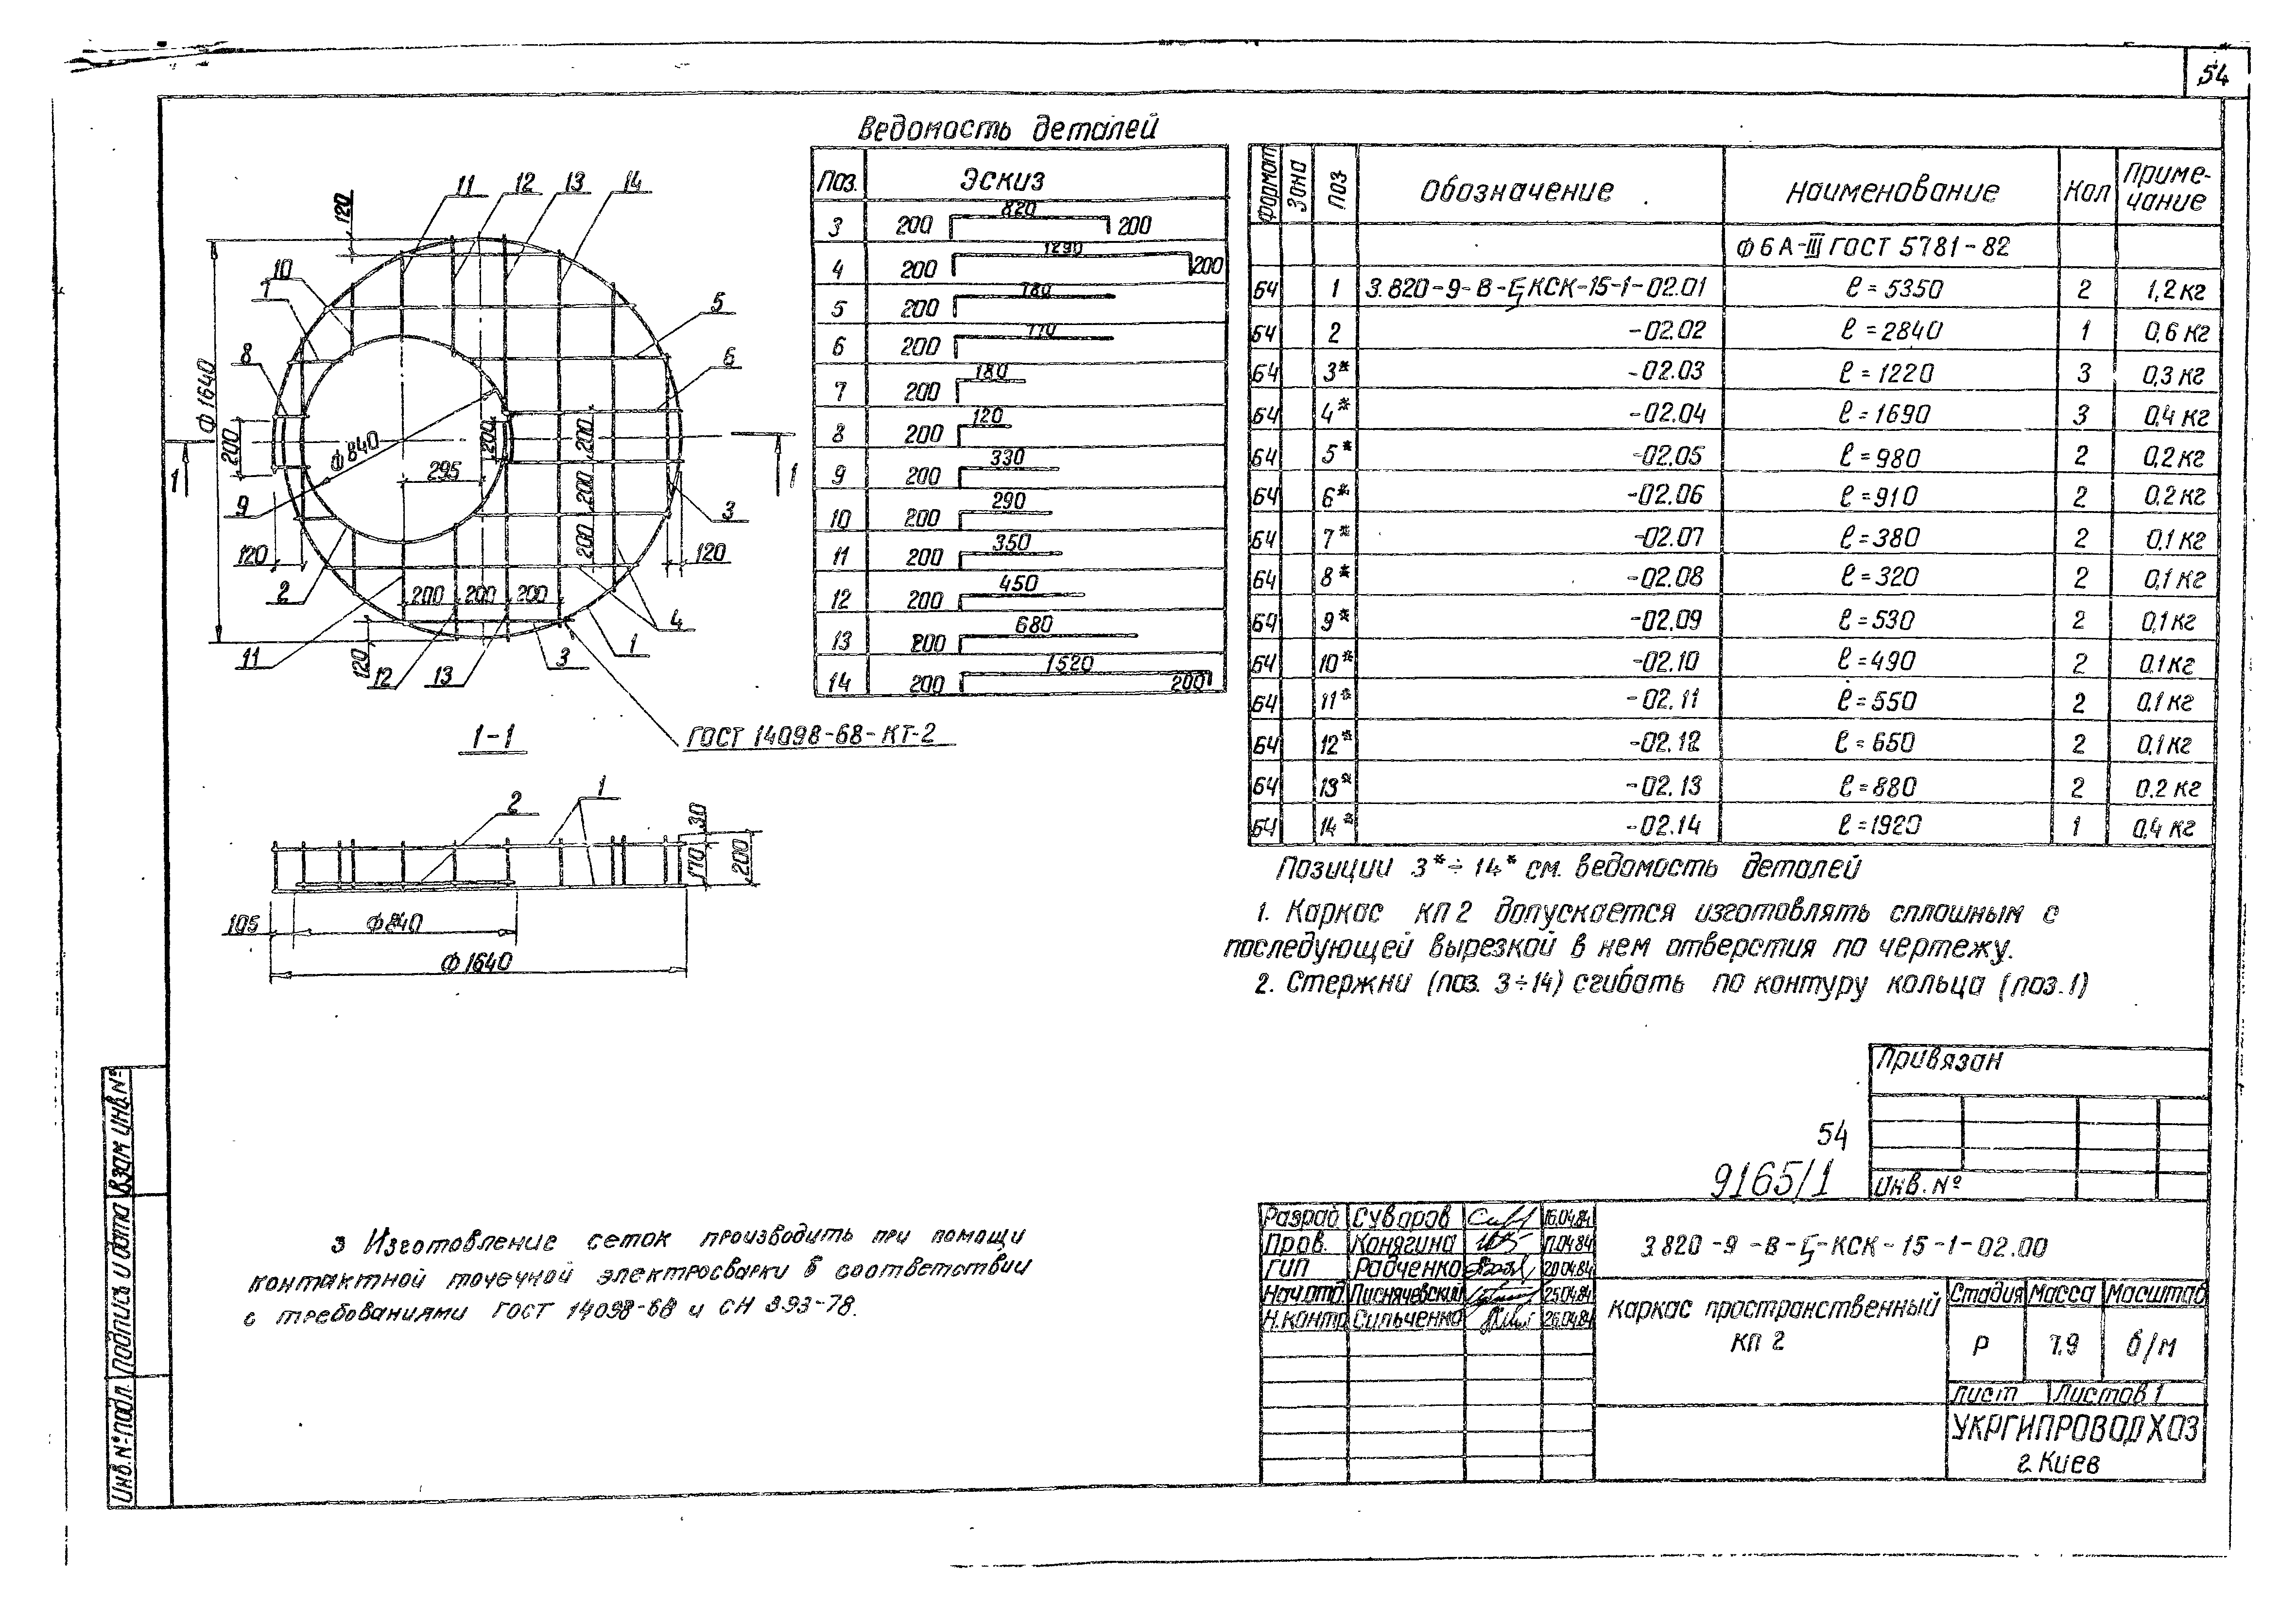 54
Ведомость деталей
Поз. Эскиз
3 200 820 200
4 200 1290 200
5 200 780
6 200 710
7 200 180
8 200 120
9 200 330
10 200 290
11 200 350
12 200 450
13 200 680
14 200 1520 200
Формат Зона Поз Обозначение Наименование Кол Приме-
чание
Ф6А-III ГОСТ 5781-82
Б4 1 3.820-9-В-Ц-КСК-15-1-02.01 ℓ=5350 2 1,2 кг
Б4 2 -02.02 ℓ=2840 1 0,6 кг
Б4 3* -02.03 ℓ=1220 3 0,3 кг
Б4 4* -02.04 ℓ=1690 3 0,4 кг
Б4 5* -02.05 ℓ=980 2 0,2 кг
Б4 6* -02.06 ℓ=910 2 0,2 кг
Б4 7* -02.07 ℓ=380 2 0,1 кг
Б4 8* -02.08 ℓ=320 2 0,1 кг
Б4 9* -02.09 ℓ=530 2 0,1 кг
Б4 10* -02.10 ℓ=490 2 0,1 кг
Б4 11* -02.11 ℓ=550 2 0,1 кг
Б4 12* -02.12 ℓ=650 2 0,1 кг
Б4 13* -02.13 ℓ=880 2 0.2 кг
Б4 14* -02.14 ℓ=1920 1 0,4 кг
Позиции 3*÷14* см. ведомость деталей
1. Каркас кп2 допускается изготовлять сплошным с
последующей вырезкой в нем отверстия по чертежу.
2. Стержни (поз. 3÷14) сгибать по контуру кольца (поз.1)
11 12 13 14
120
10
7
8
5
6
Ф1640
200
Ф840
200
200
295
1
1
9
200
3
120
200
120
2
200 200 200
4
11
120
12
13
3
1
ГОСТ 14098-68-КТ-2
1-1
2
1
30
170
200
105
Ф840
Ф1640
3 Изготовление сеток производить при помощи
контактной точечной электросварки в соответствии
с требованиями ГОСТ 14098-68 и СН 393-78.
Привязан
Инв. №
54
9165/1
Разраб Суворов 16.04.84
Пров. Конягина 17.04.84
ГИП Радченко 20.04.84
Нач.отд. Лиснячевский 25.04.84
Н.контр Сильченко 26.04.84
3.820-9-В-Ц-КСК-15-1-02.00
каркас пространственный
кп 2
Стадия Масса Масштаб
Р 7.9 б/м
Лист Листов 1
УКРГИПРОВОДХОЗ
г. Киев
Взам инв.№
Подпись и дата
Инв.№подл.